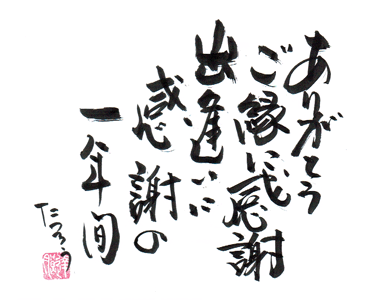 ありがとう
ご縁に感謝
出逢いに
感謝の
一年間
たつろう